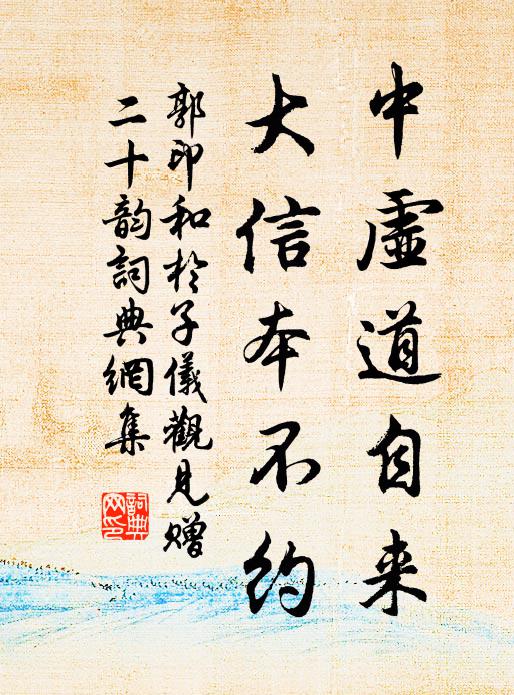 中虚道自来
大信本不约
郭印和於子儀觀見赠
二十韵詞典網集
詞典网印